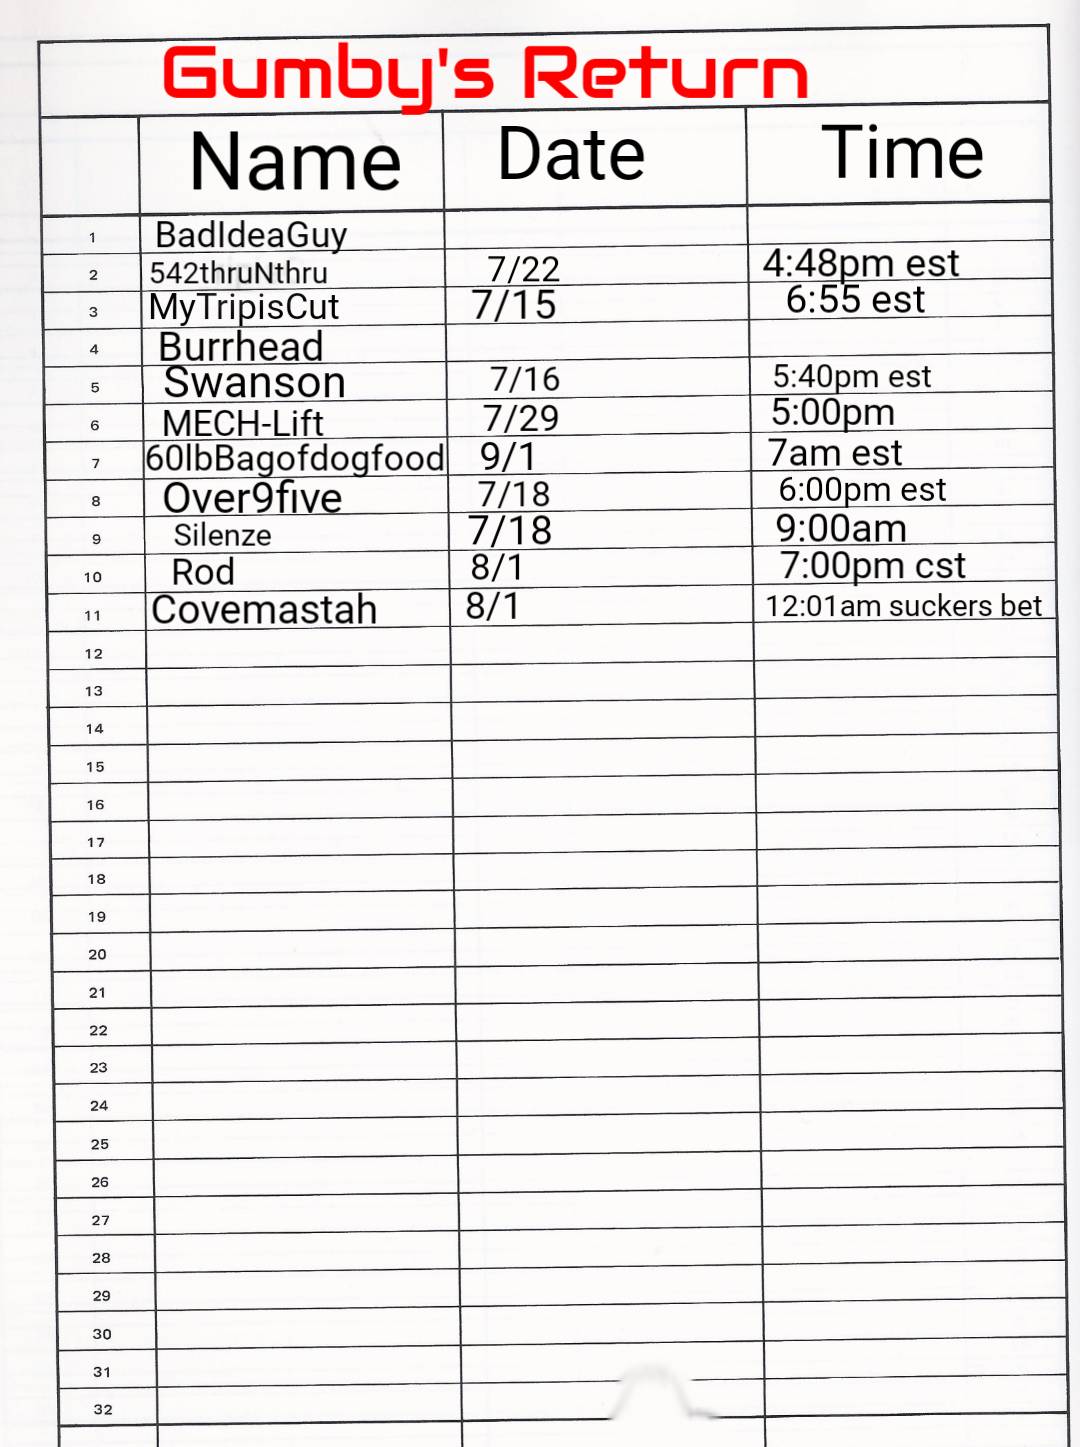 Gumby's Return
Name Date Time
1 BadIdeaGuy
2 542thruNthru 7/22 4:48pm est
3 MyTripisCut 7/15 6:55 est
4 Burrhead
5 Swanson 7/16 5:40pm est
6 MECH-Lift 7/29 5:00pm
7 60lbBagofdogfood 9/1 7am est
8 Over9five 7/18 6:00pm est
9 Silenze 7/18 9:00am
10 Rod 8/1 7:00pm cst
11 Covemastah 8/1 12:01am suckers bet
12
13
14
15
16
17
18
19
20
21
22
23
24
25
26
27
28
29
30
31
32